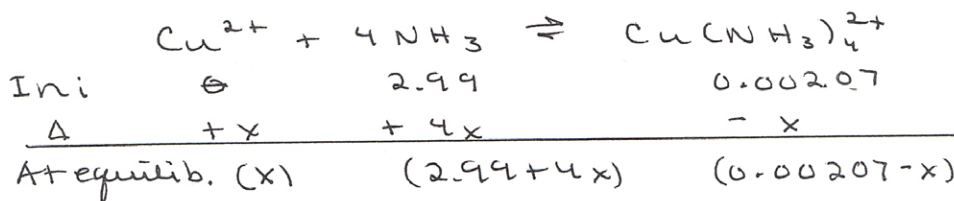 Cu²⁺ + 4 NH₃ ⇌ Cu(NH₃)₄²⁺
Ini 0 2.99 0.00207
Δ + x + 4x - x
At equilib. (x) (2.99+4x) (0.00207-x)